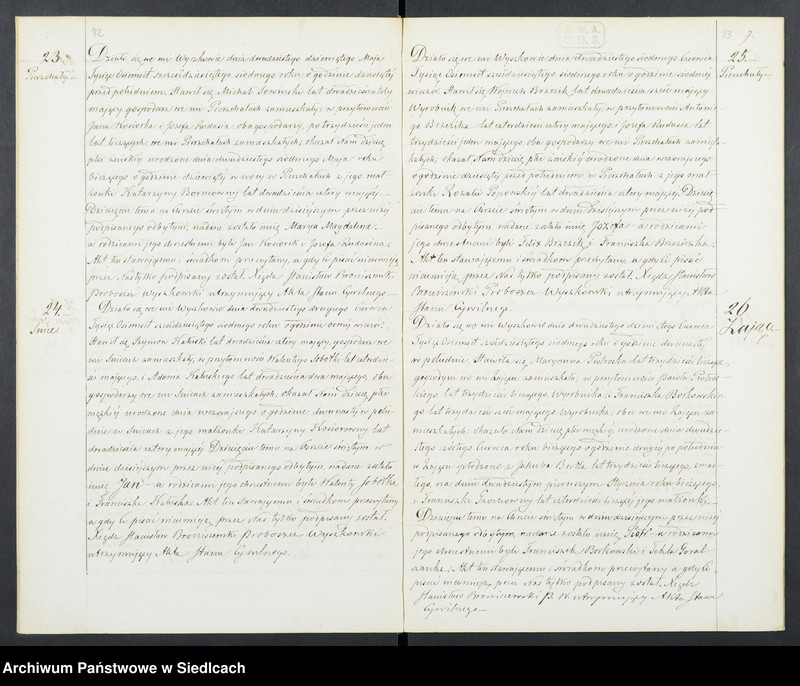 12
23.
Pierzchały
Działo się we wsi Wyszkowie dnia dwudziestego dziewiątego Maja
Tysiąc Ośmset sześćdziesiątego siodmego roku o godzinie dziesiątej
przed południem. Stawił się Michał lat dwadzieścia cztery
mający, gospodarz we wsi Pierzchałach zamieszkały, w przytomności
Jana Kosiorka i Józefa Rudasia, oba gospodarzy, po trzydzieści jeden
lat liczących, we wsi Pierzchałach zamieszkałych, okazał Nam dziecię
płci żeńskiej urodzone dnia dwudziestego siodmego Maja roku
bieżącego o godzinie dziewiątej w nocy w Pierzchałach z jego mał-
żonki Katarzyny lat dwadzieścia cztery mającej.
Dziecięciu temu na Chrzcie świętym w dniu dzisiejszym przez niżej
podpisanego odbytym, nadane zostało imię Marya Magdalena,
a rodzicami jego chrzestnemi byli Jan Kosiorek i Józefa Rudasiów.
Akt ten stawającemu i świadkom przeczytany, a gdy ci pisać nieumieją
przez Nas tylko podpisany został. Xiądz Stanisław Broniszewski
Proboszcz Wyszkowski utrzymujący Akta Stanu Cywilnego.
24.
Śnice
Działo się we wsi Wyszkowie dnia dwudziestego drugiego Czerwca
Tysiąc Ośmset sześćdziesiątego siodmego roku o godzinie osmej wieczor.
Stawił się Szymon Kałuski lat dwadzieścia cztery mający, gospodarz we
wsi Śnicach zamieszkały, w przytomności Walentego Sobotki lat czterdzie-
ści mającego, i Adama Kałuskiego lat dwadzieścia dwa mającego, obu
gospodarzy we wsi Śnicach zamieszkałych, okazał Nam dziecię płci
męzkiej urodzone dnia wczorajszego o godzinie dwunastej w połu-
dnie w Śnicach z jego małżonki Katarzyny lat
dwadzieścia cztery mającej Dziecięciu temu na Chrzcie świętym w
dniu dzisiejszym przez niżej podpisanego odbytym, nadane zostało
imię Jan a rodzicami jego chrzestnemi byli Walenty Sobotka
i Franciszka Kałuska. Akt ten stawającemu i świadkom przeczytany
a gdy ci pisać nieumieją przez Nas tylko podpisany został.
Xiądz Stanisław Broniszewski Proboszcz Wyszkowski
utrzymujący Akta Stanu Cywilnego.
13 7
25.
Pierzchały
Działo się we wsi Wyszkowie dnia dwudziestego siodmego Czerwca
Tysiąc Ośmset sześćdziesiątego siodmego roku o godzinie siodmej
wieczor. Stawił się Wojciech Brzezik lat dwadzieścia sześć mający
Wyrobnik we wsi Pierzchałach zamieszkały, w przytomności Antonie-
go Brzezika lat czterdzieści cztery mającego i Józefa Rudasia lat
trzydzieści jeden mającego oba gospodarzy we wsi Pierzchałach zamiesz-
kałych, okazał Nam dziecię płci żeńskiej urodzone dnia wczorajszego
o godzinie dziesiątej przed południem w Pierzchałach z jego mał-
żonki Rozalii Popowskiej lat dwadzieścia cztery mającej. Dziecię-
ciu temu na Chrzcie świętym w dniu dzisiejszym przez niżej pod-
pisanego odbytym, nadane zostało imię Józefa a rodzicami
jego chrzestnemi byli Felix Brzezik i Franciszka Brzezińska.
Akt ten stawającemu i świadkom przeczytany, a gdy ci pisać
nieumieją przez Nas tylko podpisany został. Xiądz Stanisław
Broniszewski Proboszcz Wyszkowski utrzymujący Akta
Stanu Cywilnego.
26
Zając
Działo się we wsi Wyszkowie dnia dwudziestego dziewiątego Czerwca
Tysiąc Ośmset sześćdziesiątego siodmego roku o godzinie dwunastej
w południe Stawiła się Maryanna Piotroska lat trzydzieści licząca,
gospodyni we wsi Zającu zamieszkała, w przytomności Pawła Piotro-
skiego lat trzydzieści liczącego, Wyrobnika, i Franciszka Borkowskie-
go lat trzydzieści sześć mającego Wyrobnika, obu we wsi Zającu za-
mieszkałych, okazała Nam dziecię płci męzkiej urodzone dnia dwudzie-
stego szóstego Czerwca roku bieżącego o godzinie drugiej po południu
w Zającu spłodzone z Jakuba lat trzydzieści liczącego, zmar-
łego, na dniu dwudziestym pierwszym Stycznia roku bieżącego,
i Franciszki lat czterdzieści liczącej jego małżonki.
Dziecięciu temu na Chrzcie świętym w dniu dzisiejszym przez niżej
podpisanego odbytym, nadane zostało imię Piotr a rodzicami
jego chrzestnemi byli Franciszek Borkowski i Tekla Goral-
czanka. Akt ten stawającemu i świadkom przeczytany a gdy ci
pisać nieumieją, przez Nas tylko podpisany został. Xiądz
Stanisław Broniszewski P. W. utrzymujący Akta Stanu
Cywilnego.
Archiwum Państwowe w Siedlcach